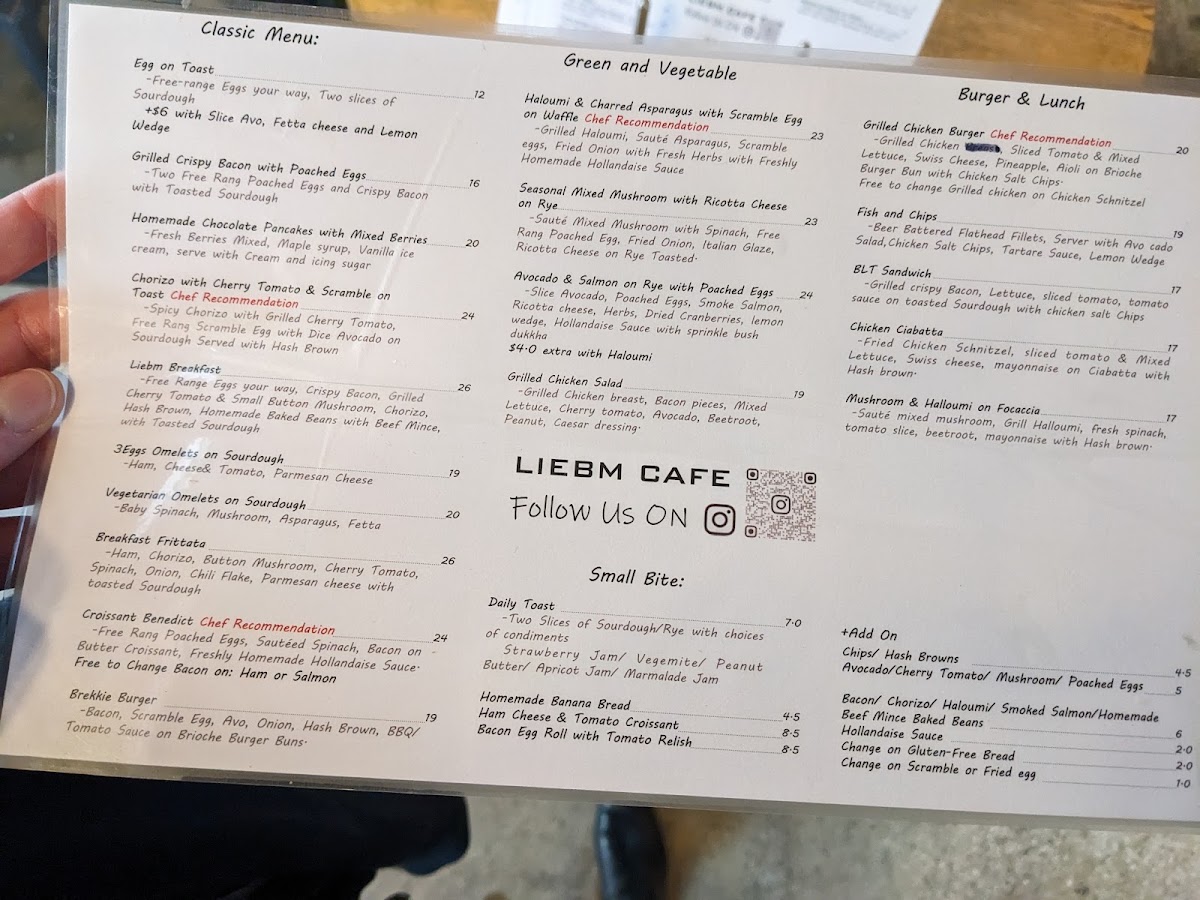 Classic Menu:
Egg on Toast 12
-Free-range Eggs your way, Two slices of
Sourdough
+$6 with Slice Avo, Fetta cheese and Lemon
Wedge
Grilled Crispy Bacon with Poached Eggs 16
-Two Free Rang Poached Eggs and Crispy Bacon
with Toasted Sourdough
Homemade Chocolate Pancakes with Mixed Berries 20
-Fresh Berries Mixed, Maple syrup, Vanilla ice
cream, serve with Cream and icing sugar
Chorizo with Cherry Tomato & Scramble on
Toast Chef Recommendation 24
-Spicy Chorizo with Grilled Cherry Tomato,
Free Rang Scramble Egg with Dice Avocado on
Sourdough Served with Hash Brown
Liebm Breakfast 26
-Free Range Eggs your way, Crispy Bacon, Grilled
Cherry Tomato & Small Button Mushroom, Chorizo,
Hash Brown, Homemade Baked Beans with Beef Mince,
with Toasted Sourdough
3Eggs Omelets on Sourdough 19
-Ham, Cheese& Tomato, Parmesan Cheese
Vegetarian Omelets on Sourdough 20
-Baby Spinach, Mushroom, Asparagus, Fetta
Breakfast Frittata 26
-Ham, Chorizo, Button Mushroom, Cherry Tomato,
Spinach, Onion, Chili Flake, Parmesan cheese with
toasted Sourdough
Croissant Benedict Chef Recommendation 24
-Free Rang Poached Eggs, Sautéed Spinach, Bacon on
Butter Croissant, Freshly Homemade Hollandaise Sauce.
Free to Change Bacon on: Ham or Salmon
Brekkie Burger 19
-Bacon, Scramble Egg, Avo, Onion, Hash Brown, BBQ/
Tomato Sauce on Brioche Burger Buns.
Green and Vegetable
Haloumi & Charred Asparagus with Scramble Egg
on Waffle Chef Recommendation 23
-Grilled Haloumi, Sauté Asparagus, Scramble
eggs, Fried Onion with Fresh Herbs with Freshly
Homemade Hollandaise Sauce
Seasonal Mixed Mushroom with Ricotta Cheese
on Rye 23
-Sauté Mixed Mushroom with Spinach, Free
Rang Poached Egg, Fried Onion, Italian Glaze,
Ricotta Cheese on Rye Toasted.
Avocado & Salmon on Rye with Poached Eggs 24
-Slice Avocado, Poached Eggs, Smoke Salmon,
Ricotta cheese, Herbs, Dried Cranberries, lemon
wedge, Hollandaise Sauce with sprinkle bush
dukkha
$4.0 extra with Haloumi
Grilled Chicken Salad 19
-Grilled Chicken breast, Bacon pieces, Mixed
Lettuce, Cherry tomato, Avocado, Beetroot,
Peanut, Caesar dressing.
LIEBM CAFE
Follow Us ON
Small Bite:
Daily Toast 7.0
-Two Slices of Sourdough/Rye with choices
of condiments
Strawberry Jam/ Vegemite/ Peanut
Butter/ Apricot Jam/ Marmalade Jam
Homemade Banana Bread 4.5
Ham Cheese & Tomato Croissant 8.5
Bacon Egg Roll with Tomato Relish 8.5
Burger & Lunch
Grilled Chicken Burger Chef Recommendation 20
-Grilled Chicken , Sliced Tomato & Mixed
Lettuce, Swiss Cheese, Pineapple, Aioli on Brioche
Burger Bun with Chicken Salt Chips.
Free to change Grilled chicken on Chicken Schnitzel
Fish and Chips 19
-Beer Battered Flathead Fillets, Server with Avo cado
Salad,Chicken Salt Chips, Tartare Sauce, Lemon Wedge
BLT Sandwich 17
-Grilled crispy Bacon, Lettuce, sliced tomato, tomato
sauce on toasted Sourdough with chicken salt Chips
Chicken Ciabatta 17
-Fried Chicken Schnitzel, sliced tomato & Mixed
Lettuce, Swiss cheese, mayonnaise on Ciabatta with
Hash brown.
Mushroom & Halloumi on Focaccia 17
-Sauté mixed mushroom, Grill Halloumi, fresh spinach,
tomato slice, beetroot, mayonnaise with Hash brown.
+Add On
Chips/ Hash Browns 4.5
Avocado/Cherry Tomato/ Mushroom/ Poached Eggs 5
Bacon/ Chorizo/ Haloumi/ Smoked Salmon/Homemade
Beef Mince Baked Beans 6
Hollandaise Sauce 2.0
Change on Gluten-Free Bread 2.0
Change on Scramble or Fried egg 1.0